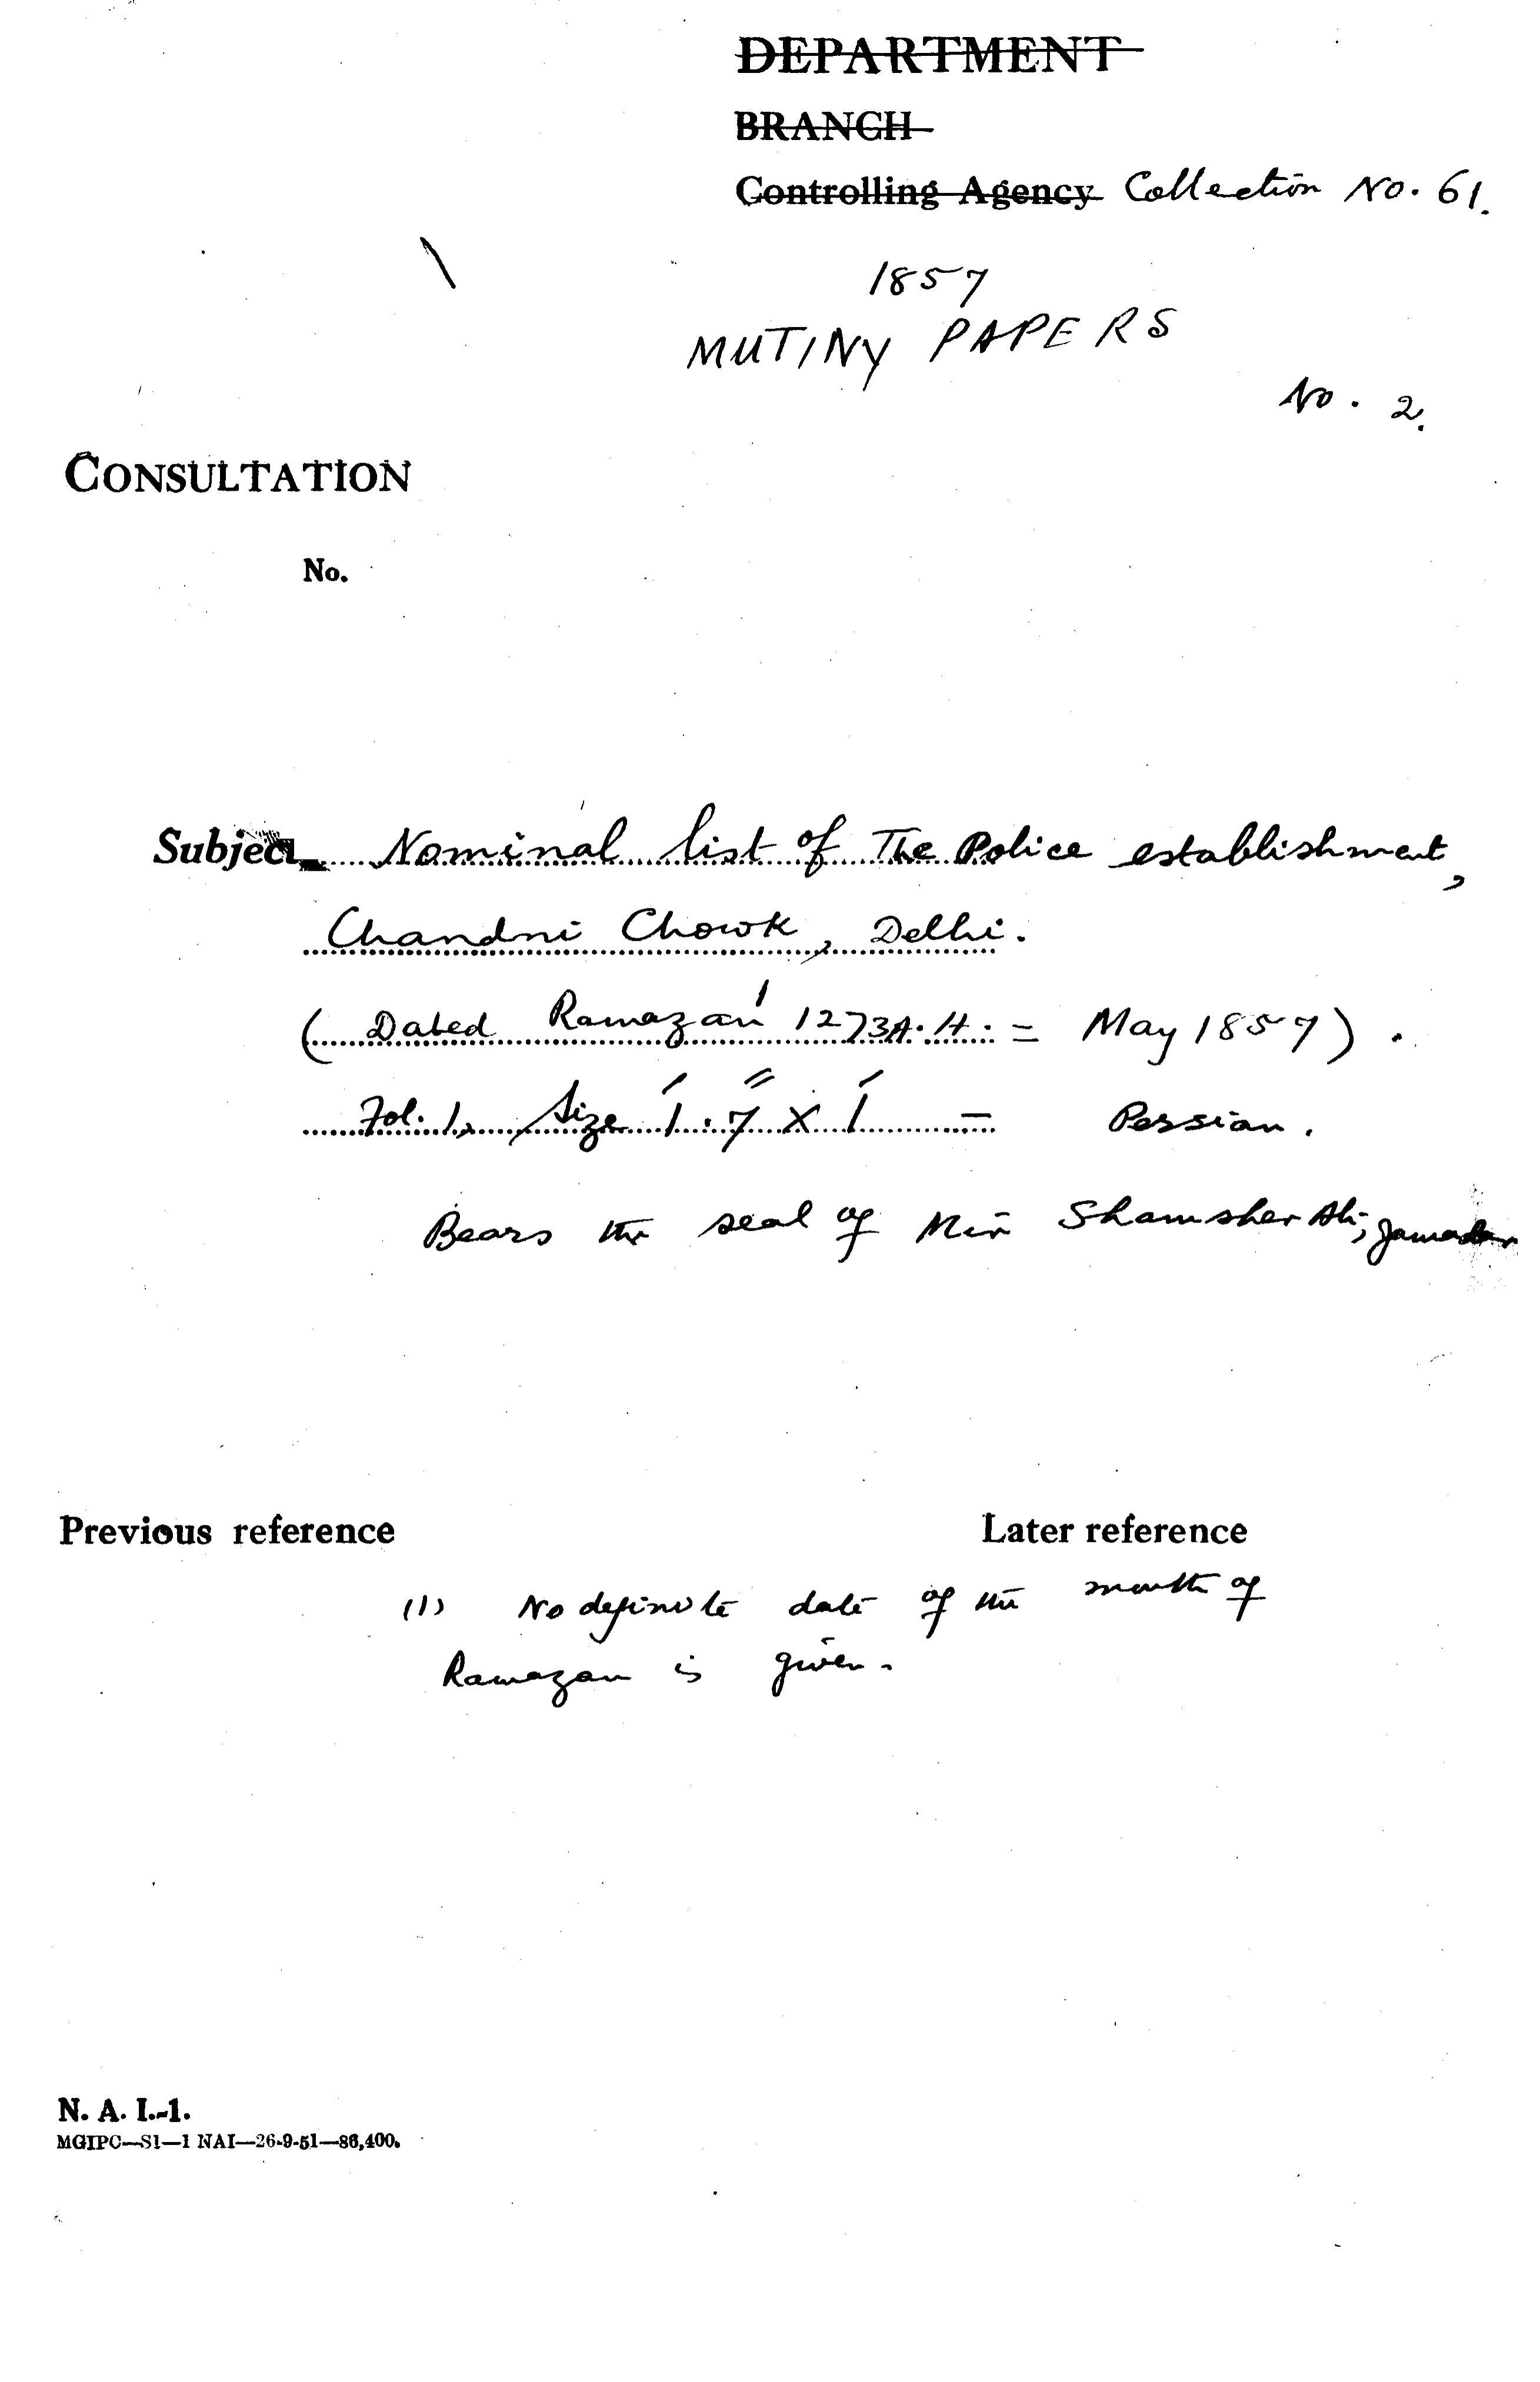 DEPARTMENT
BRANCH
Controlling Agency Collection No. 61.
1857
MUTINY PAPERS
No. 2.
CONSULTATION
No.
Subject Nominal list of The Police establishment,
Chandni Chowk, Delhi.
(Dated Ramazan 1 1273 A.H. = May 1857).
Fol. 1, Size 1'.7" x 1' — Persian.
Bears the seal of Mir Shamsher Ali, Jamadar
Previous reference Later reference
(1) No definite date of the month of
Ramazan is given.
N. A. I.-1.
MGIPC—S1—1 NAI—26-9-51—86,400.